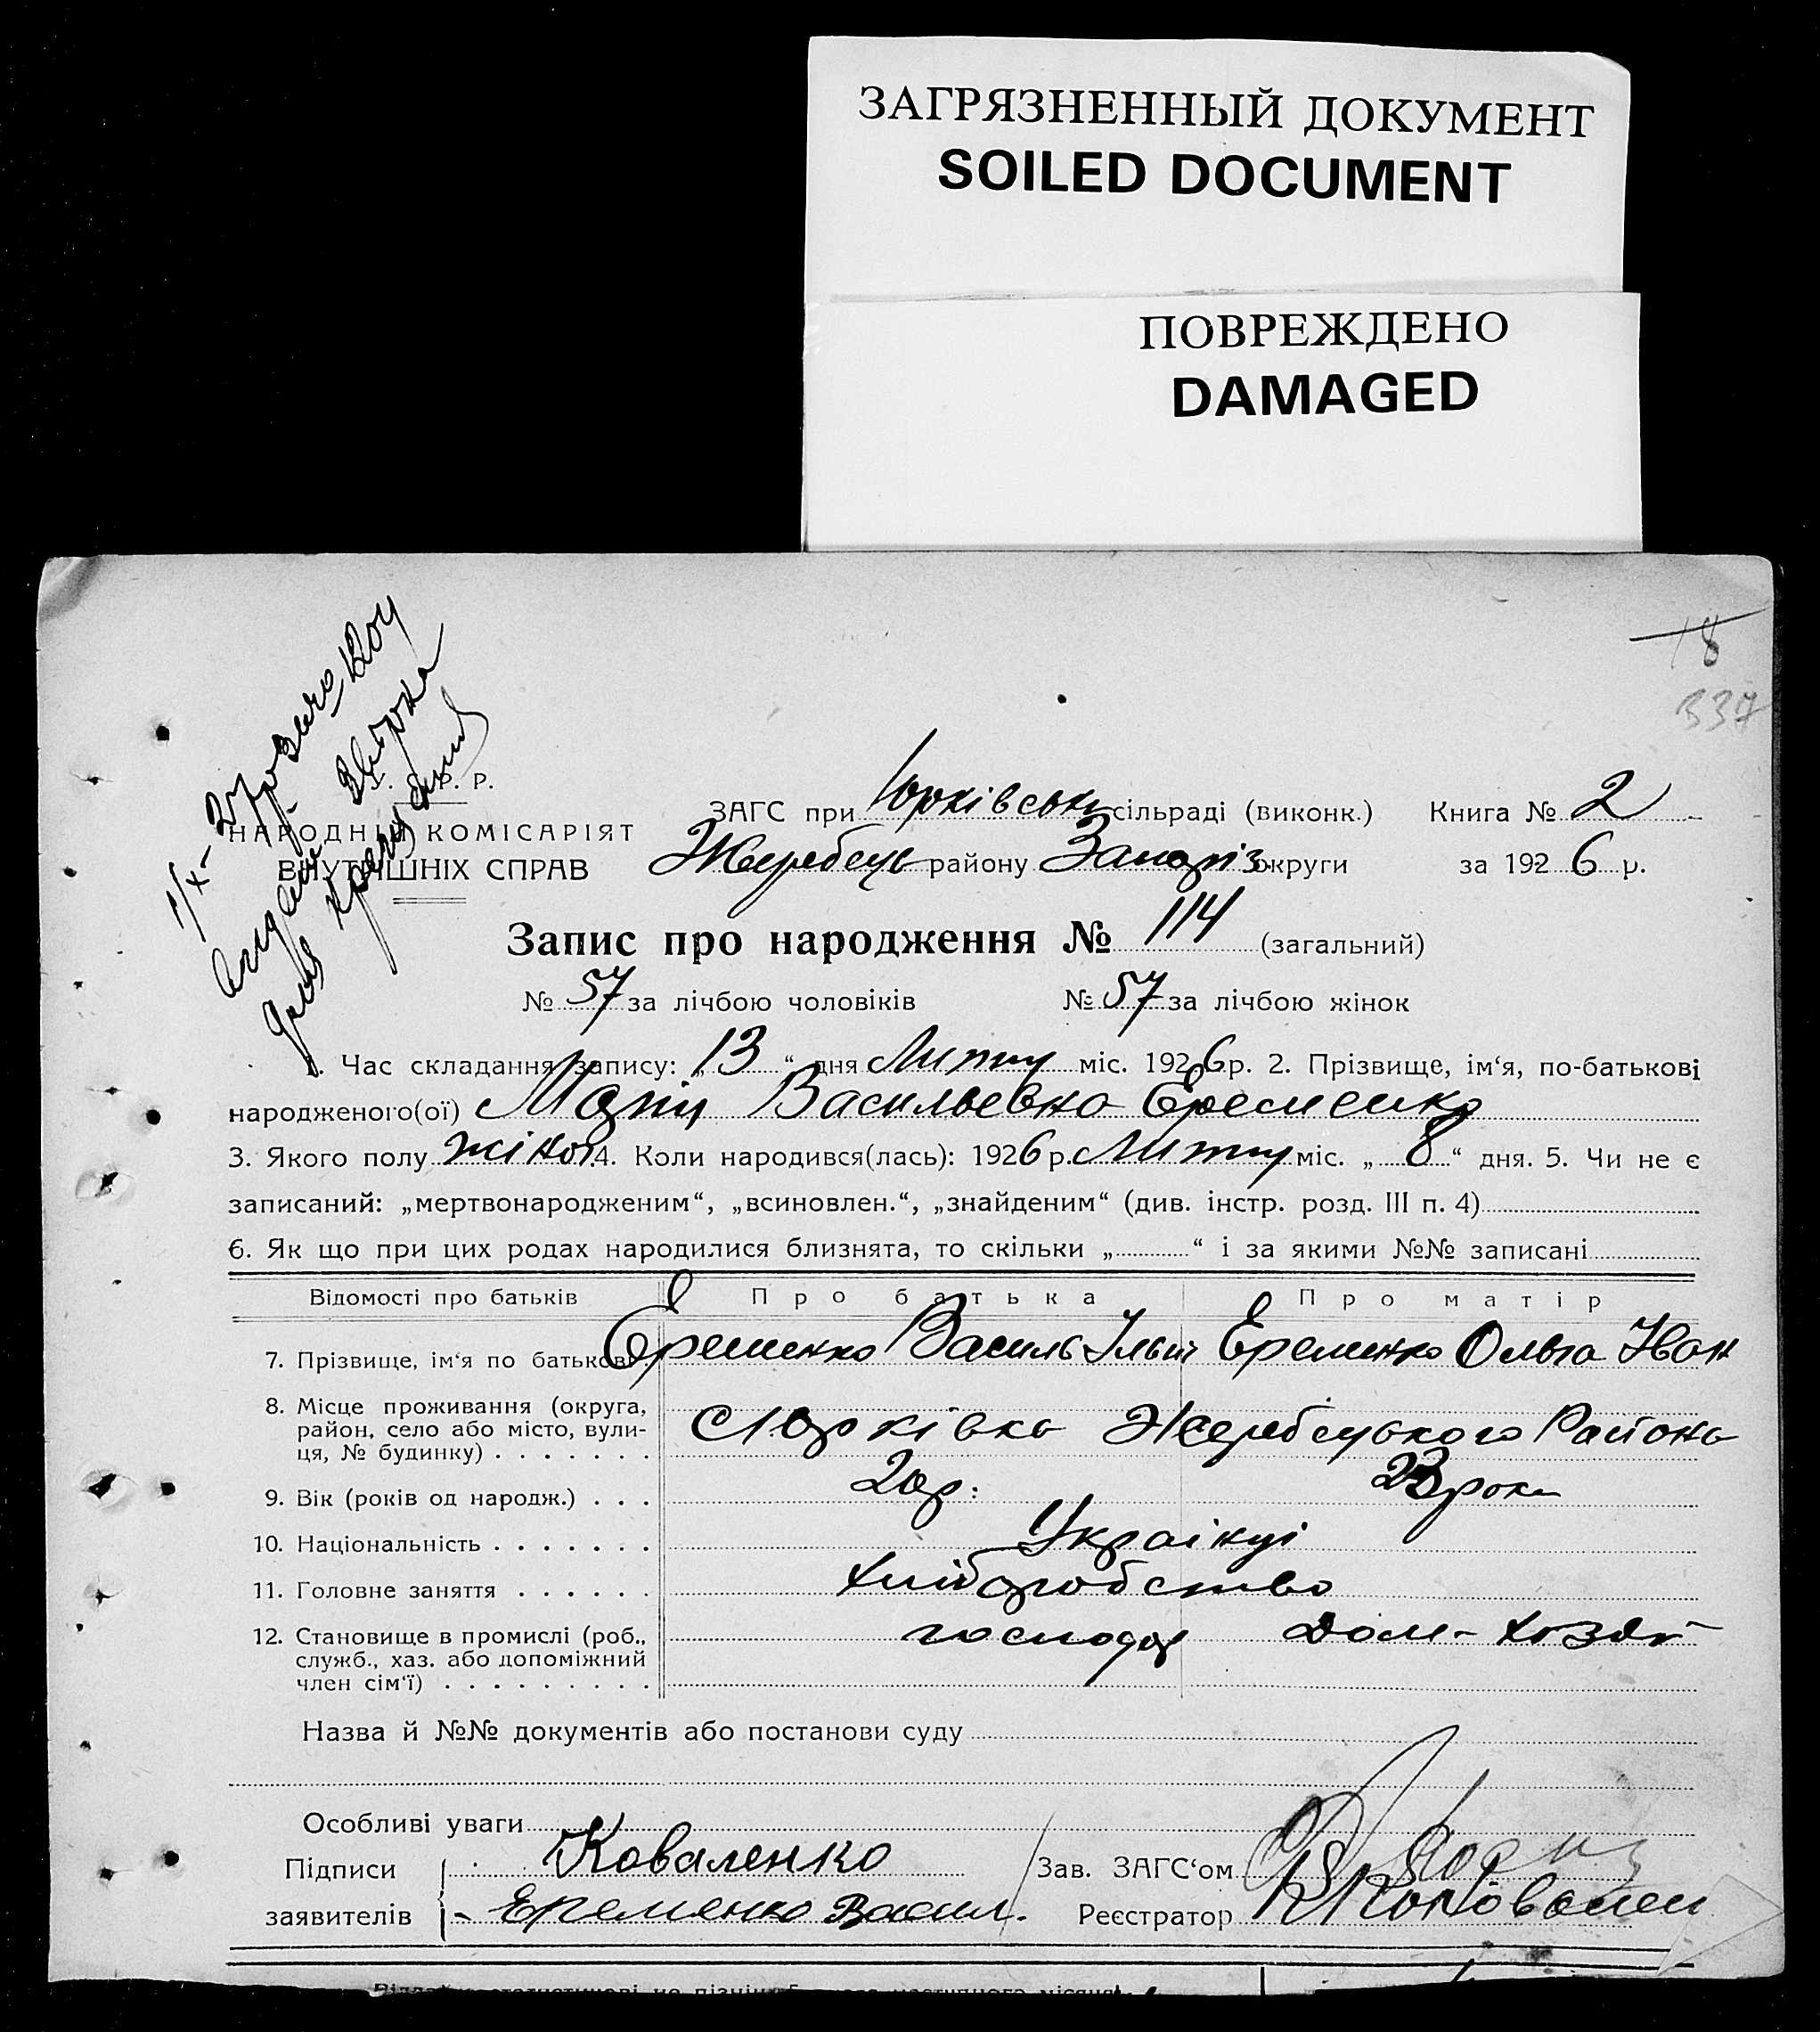 ЗАГРЯЗНЕННЫЙ ДОКУМЕНТ
SOILED DOCUMENT
ПОВРЕЖДЕНО
DAMAGED
18
337
Р. Р.
НАРОДНІЙ КОМІСАРІЯТ
ВНУТРІШНІХ СПРАВ
ЗАГС при Юрківськ сільраді (виконк.) Книга № 2
Жеребець району Запоріз округи за 1926 р.
Запис про народження № 114 (загальний)
№ 57 за лічбою чоловіків № 57 за лічбою жінок
1. Час складання запису: „13“ дня Липня міс. 1926 р. 2. Прізвище, ім‘я, по-батькові
народженого(ої) Марія Васильевна Еременко
3. Якого полу жіноч. 4. Коли народився(лась): 1926 р. Липня міс. „8“ дня. 5. Чи не є
записаний: „мертвонародженим“, „всиновлен.“, „знайденим“ (див. інстр. розд. III п. 4)
6. Як що при цих родах народилися близнята, то скільки „ “ і за якими №№ записані
Відомості про батьків Про батька Про матір
7. Прізвище, ім‘я по батькові Еременко Василь Ільїч Еременко Ольга Іван
8. Місце проживання (округа,
район, село або місто, вули-
ця, № будинку) . . . . . . . с Юрківка Жеребецького Района
9. Вік (років од народж.) . . . 20р. 23 роки
10. Національність . . . . . . . Українці
11. Головне заняття . . . . . . хліборобство
12. Становище в промислі (роб.,
служб., хаз. або допоміжний
член сім‘ї) . . . . . . . . . господар Дом-хозяй
Назва й №№ документів або постанови суду
Особливі уваги
Підписи Коваленко Зав. ЗАГС‘ом
заявителів Еременко Васил. Реєстратор